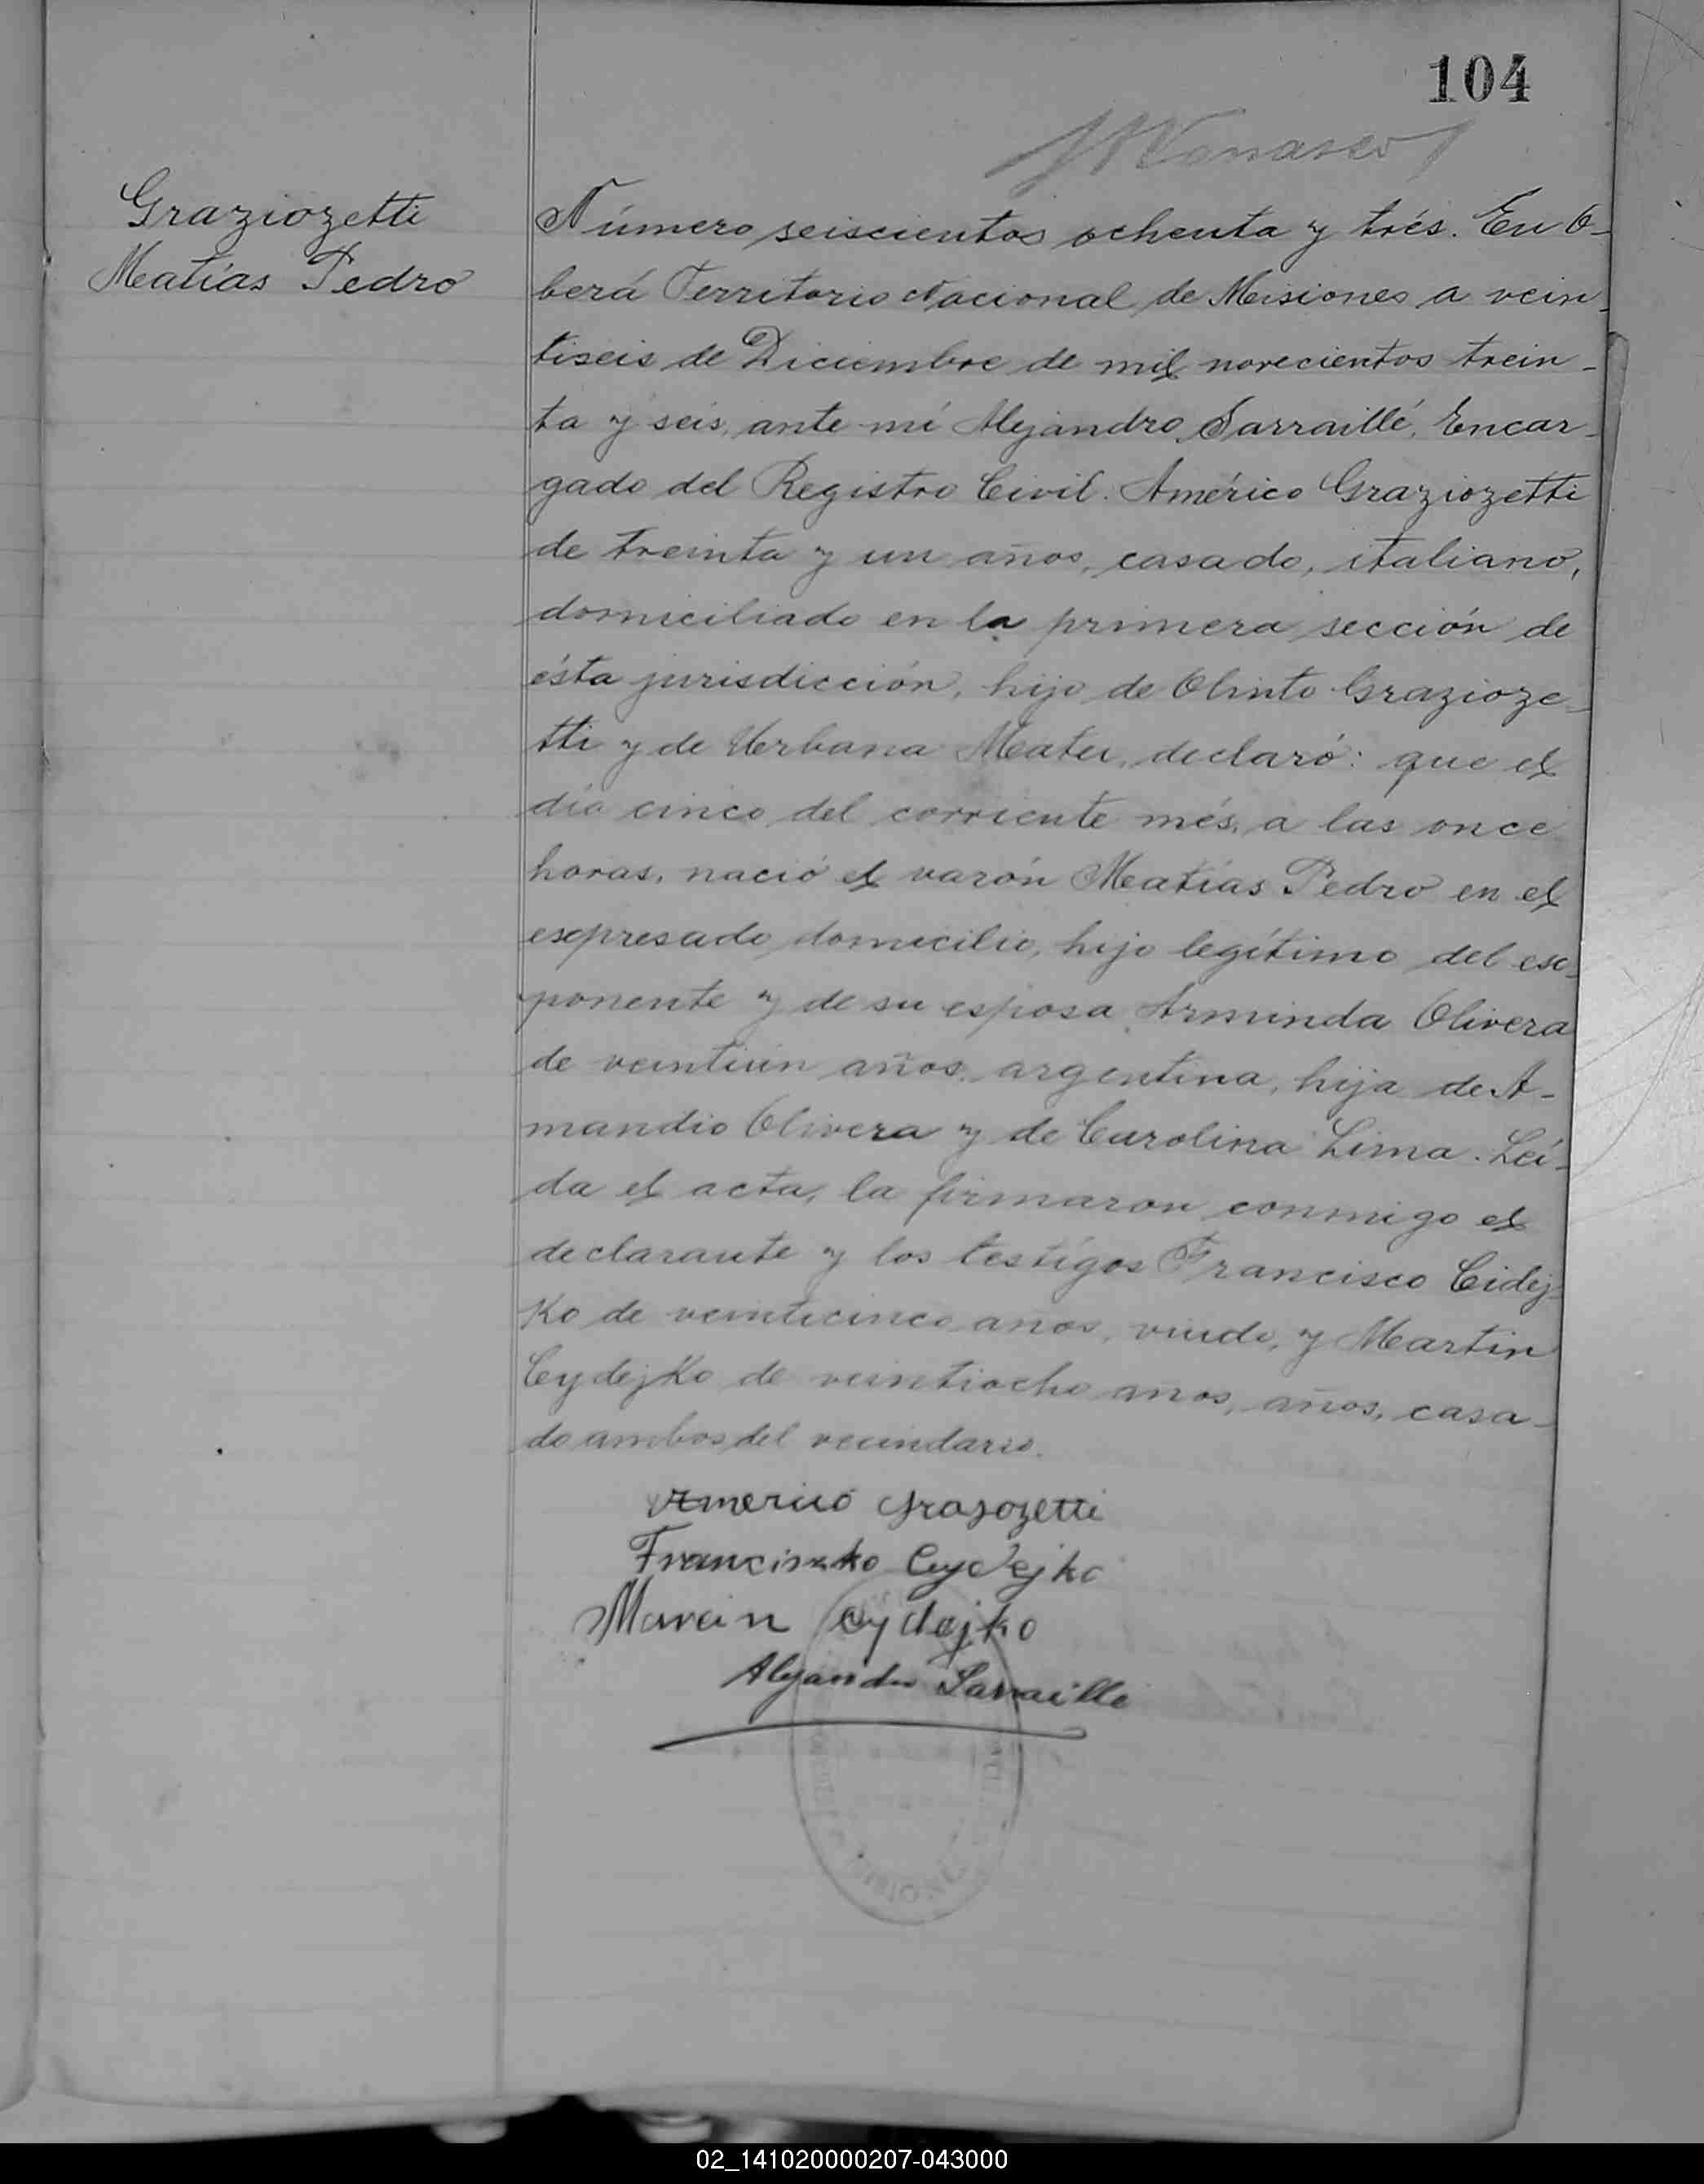 104
Graziozetti
Matías Pedro
Número seiscientos ochenta y trés. En O-
berá Territorio Nacional de Misiones a vein-
tiseis de Diciembre de mil novecientos trein-
ta y seis, ante mí Alejandro Sarraillé, Encar-
gado del Registro Civil. Américo Graziozetti
de treinta y un años, casado, italiano,
domiciliado en la primera sección de
ésta jurisdicción, hijo de Olinto Grazioze-
tti y de Urbana Matei, declaró: que el
día cinco del corriente més, a las once
horas, nació el varón Matías Pedro en el
expresado domicilio, hijo legítimo del ex-
ponente y de su esposa Arminda Olivera
de veintiún años, argentina, hija de A-
mandio Olivera y de Carolina Lima. Leí-
da el acta, la firmaron conmigo el
declarante y los testigos Francisco Cidej-
ko de veinticinco años, viudo, y Martin
Cydejko de veintiocho años, años, casa-
do ambos del vecindario.
Americo Grasozetti
Franciszko Cydejko
Marcin Cydejko
Alejandro Sarraille
MISIONES
02_141020000207-043000